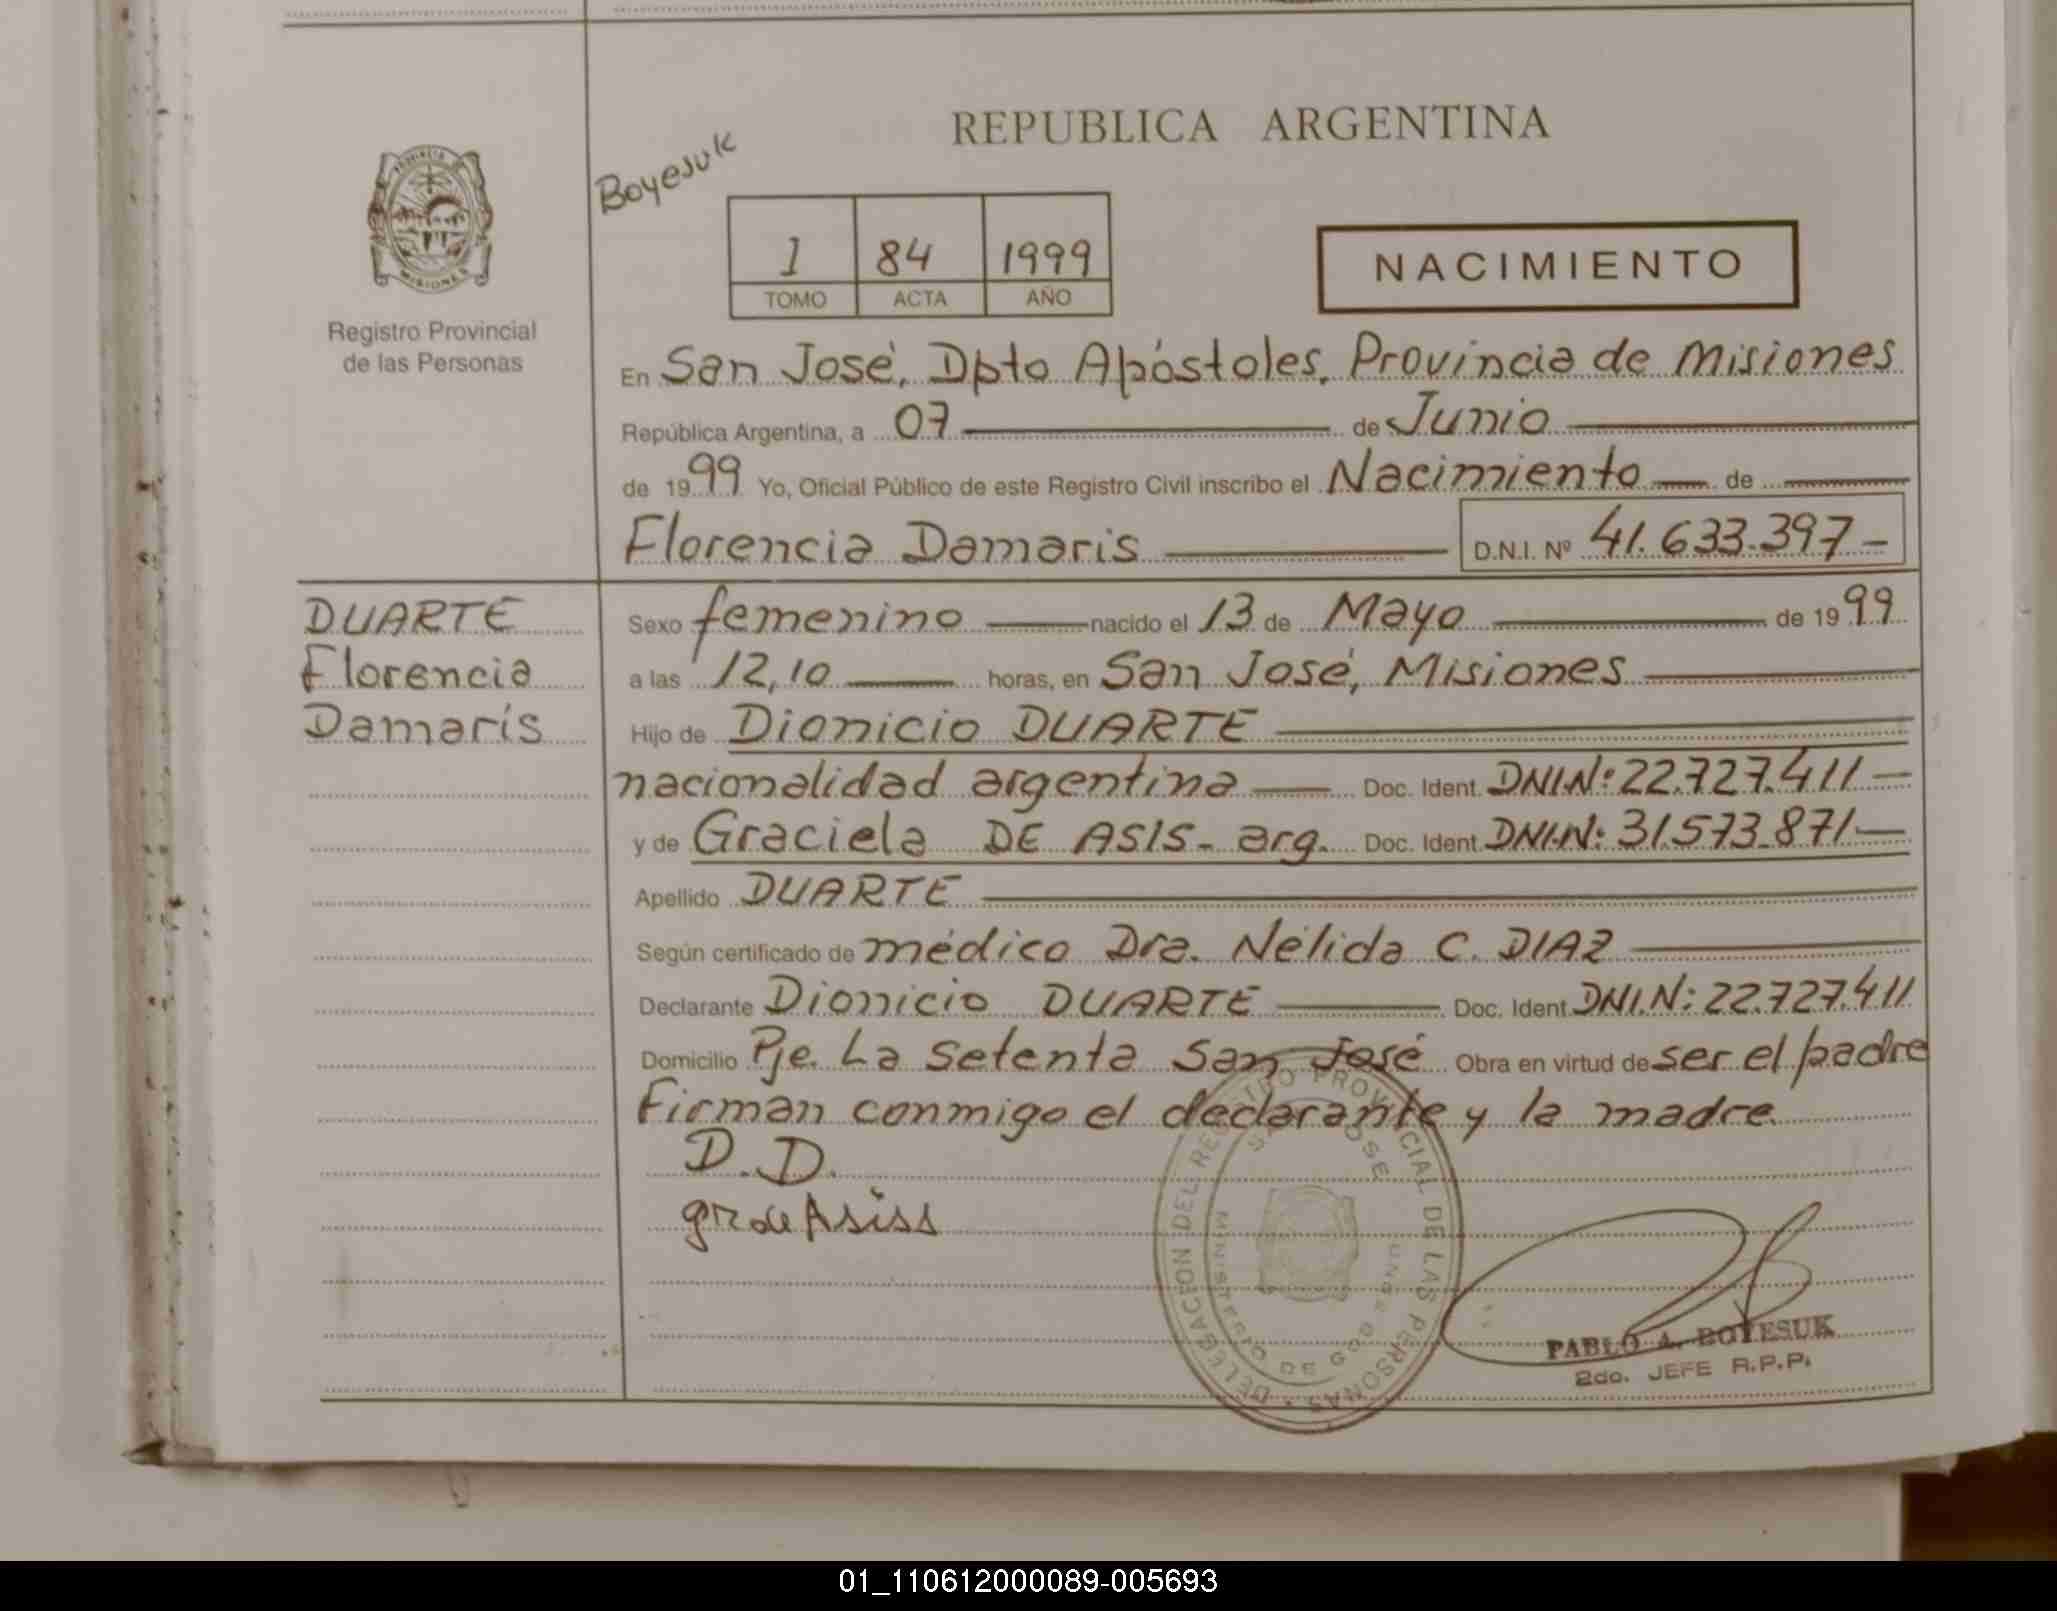 REPUBLICA ARGENTINA
Boyesuk
1 84 1999
TOMO ACTA AÑO
NACIMIENTO
PROVINCIA
MISIONES
Registro Provincial
de las Personas
En San José, Dpto Apóstoles, Provincia de Misiones
República Argentina, a 07 de Junio
de 1999 Yo, Oficial Público de este Registro Civil inscribo el Nacimiento de
Florencia Damaris D.N.I. Nº 41.633.397-
DUARTE
Florencia
Damarís
Sexo femenino nacido el 13 de Mayo de 1999
a las 12,10 horas, en San José, Misiones
Hijo de Dionicio DUARTE
nacionalidad argentina Doc. Ident. DNI.N: 22.727.411-
y de Graciela DE ASIS- arg. Doc. Ident. DNI.N: 31.573.871-
Apellido DUARTE
Según certificado de médico Dra. Nélida C. DIAZ
Declarante Dionicio DUARTE Doc. Ident. DNI.N: 22.727.411
Domicilio Pje. La Setenta San José Obra en virtud de ser el padre
Firman conmigo el declarante y la madre.
D.D.
gr de Asiss
DELEGACION DEL REGISTRO PROVINCIAL DE LAS PERSONAS
SAN JOSE
MINISTERIO DE GOBIERNO
PABLO A. BOYESUK
2do. JEFE R.P.P.
01_110612000089-005693